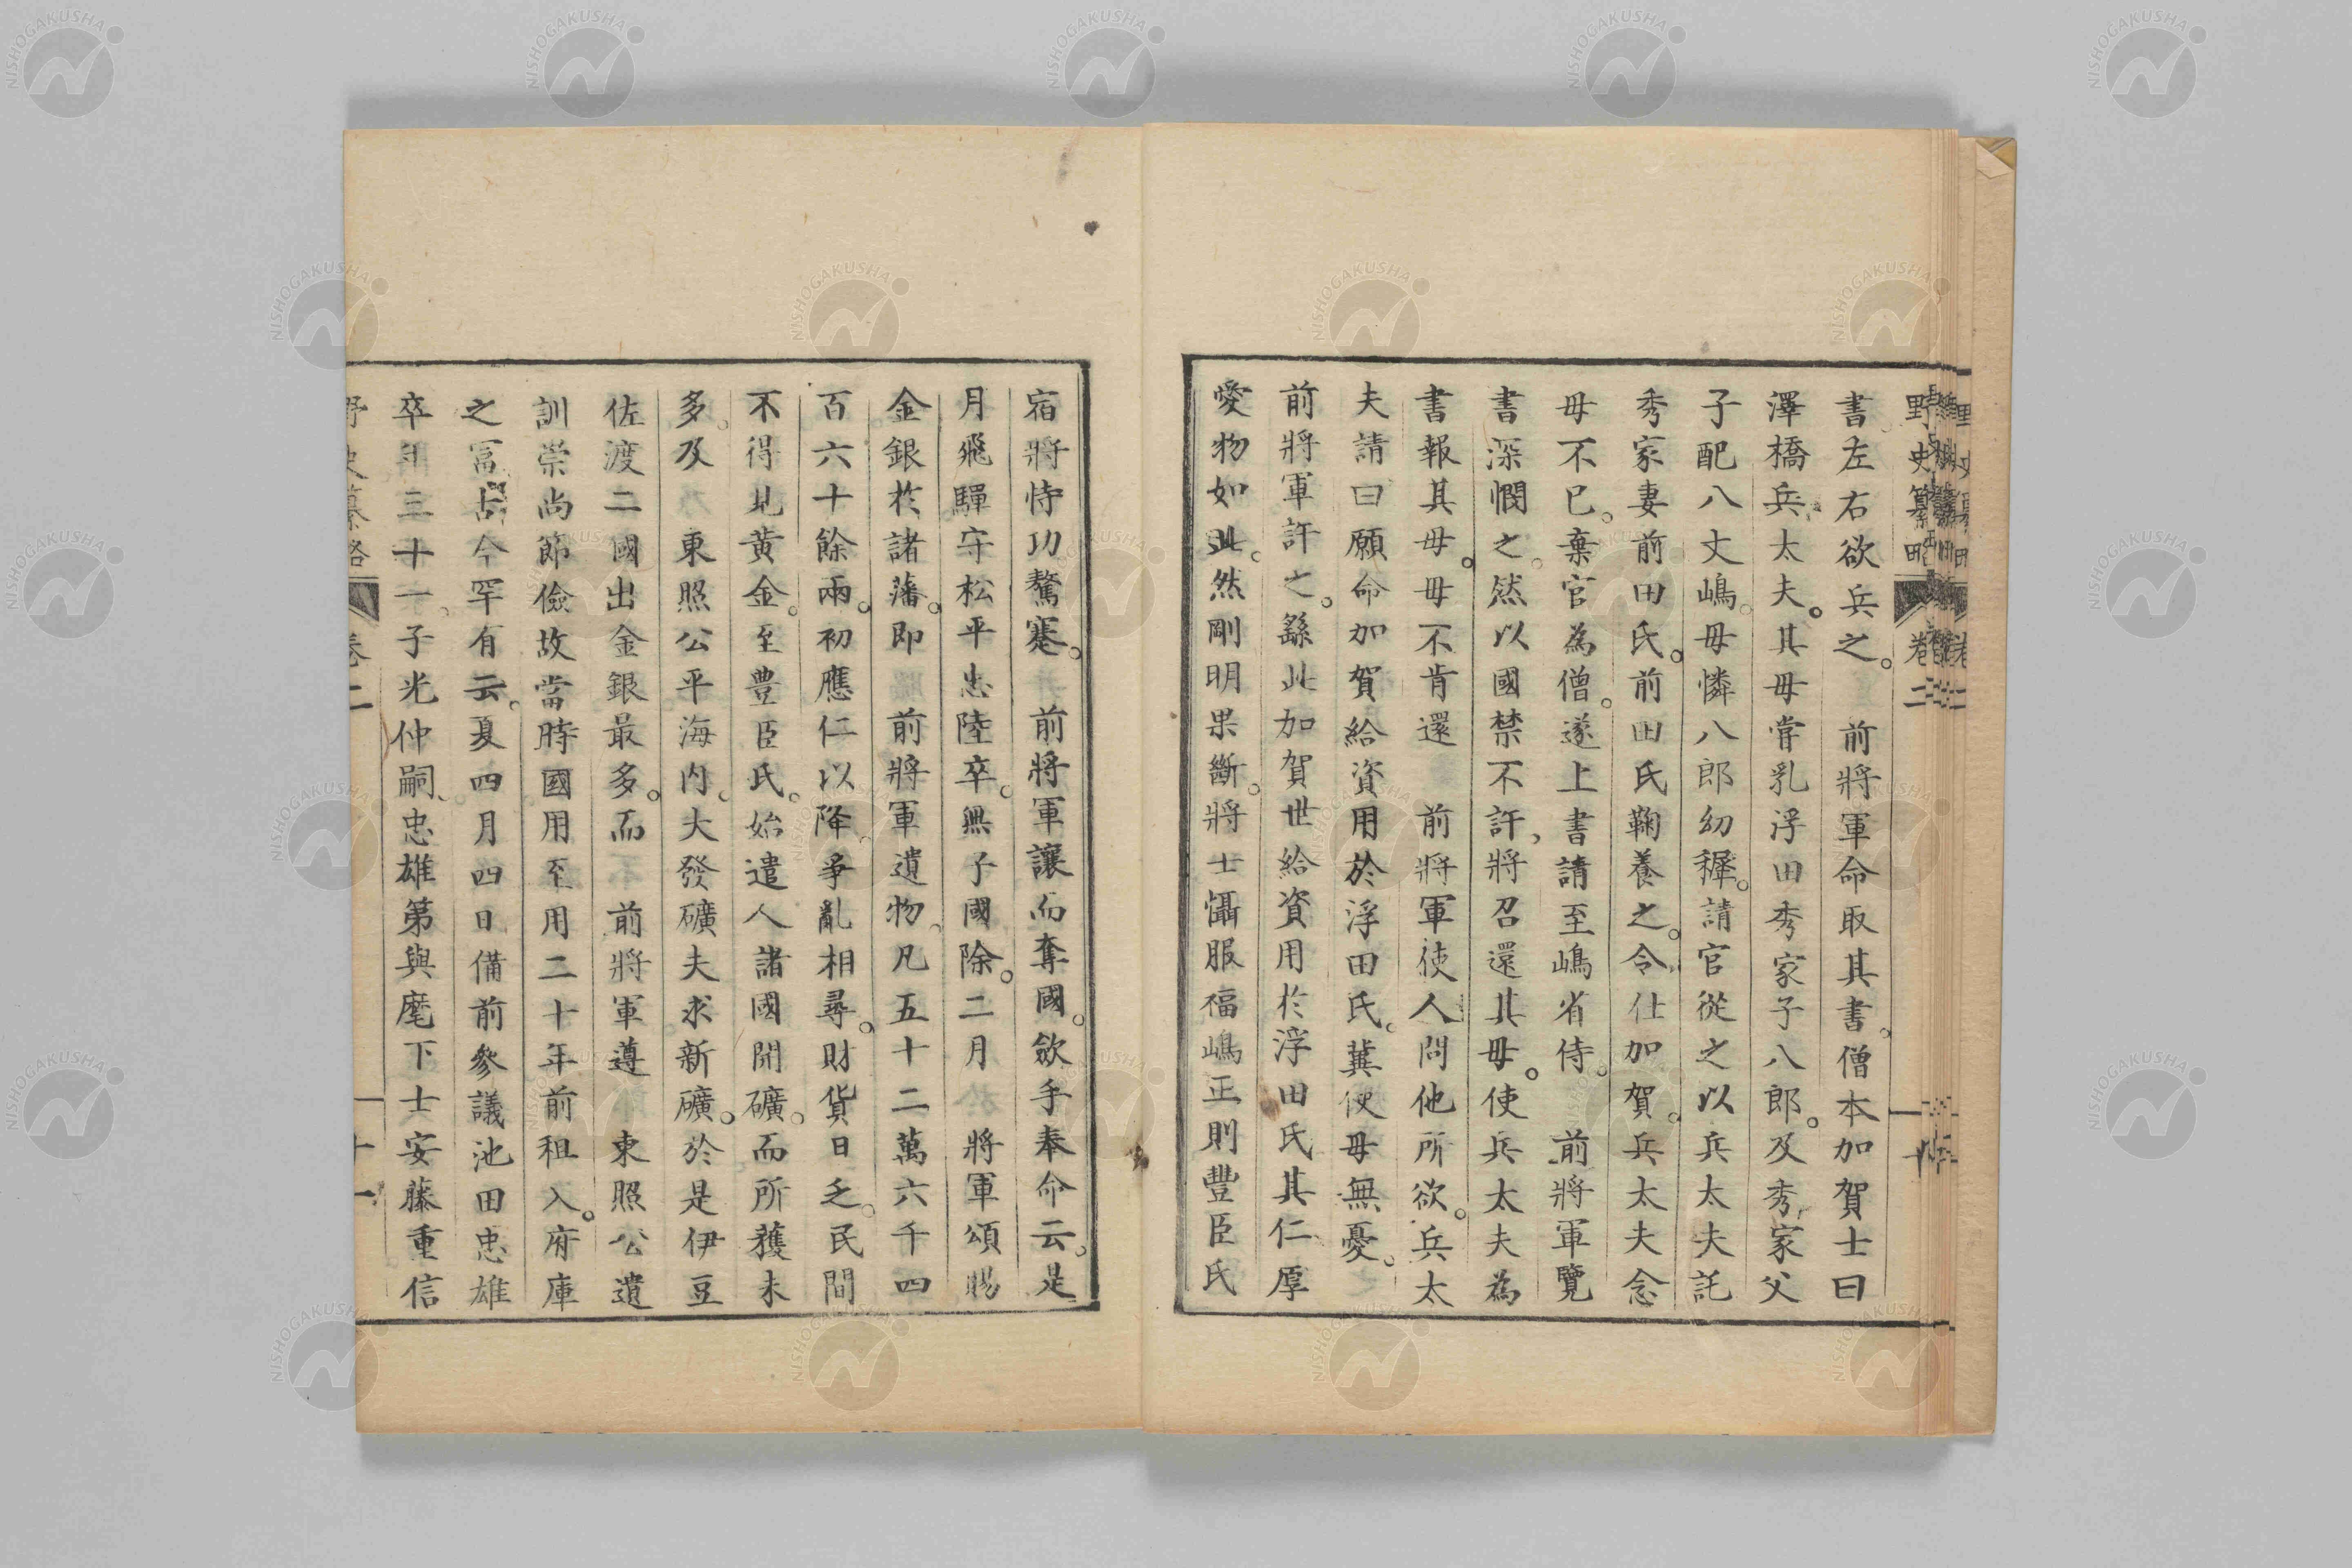 野史纂略 卷二 十
書左右欲兵之。 前將軍命取其書。僧本加賀士曰
澤橋兵太夫。其母嘗乳浮田秀家子八郎。及秀家父
子配八丈嶋。母憐八郎幼穉。請官從之以兵太夫託
秀家妻前田氏。前田氏鞠養之。令仕加賀。兵太夫念
母不已。棄官為僧。遂上書請至嶋省侍。 前將軍覽
書深憫之。然以國禁不許、將召還其母。使兵太夫為
書報其母。母不肯還 前將軍使人問他所欲。兵太
夫請曰願命加賀給資用於浮田氏。冀便母無憂。
前將軍許之。繇此加賀世給資用於浮田氏其仁厚
愛物如此。然剛明果斷。將士懾服福嶋正則豐臣氏
宿將恃功驁蹇。 前將軍讓而奪國。斂手奉命云。是
月飛驒守松平忠陸卒。無子國除。二月 將軍頒賜
金銀於諸藩。即 前將軍遺物。凡五十二萬六千四
百六十餘兩。初應仁以降。爭亂相尋。財貨日乏。民間
不得見黄金。至豊臣氏。始遣人諸國開礦。而所獲未
多。及 東照公平海内。大發礦夫求新礦。於是伊豆
佐渡二國出金銀最多。而 前將軍遵 東照公遺
訓崇尚節儉故當時國用至用二十年前租入。府庫
之富古今罕有云。夏四月四日備前參議池田忠雄
卒年三十一。子光仲嗣。忠雄第與麾下士安藤重信
野史纂略 卷二 十一